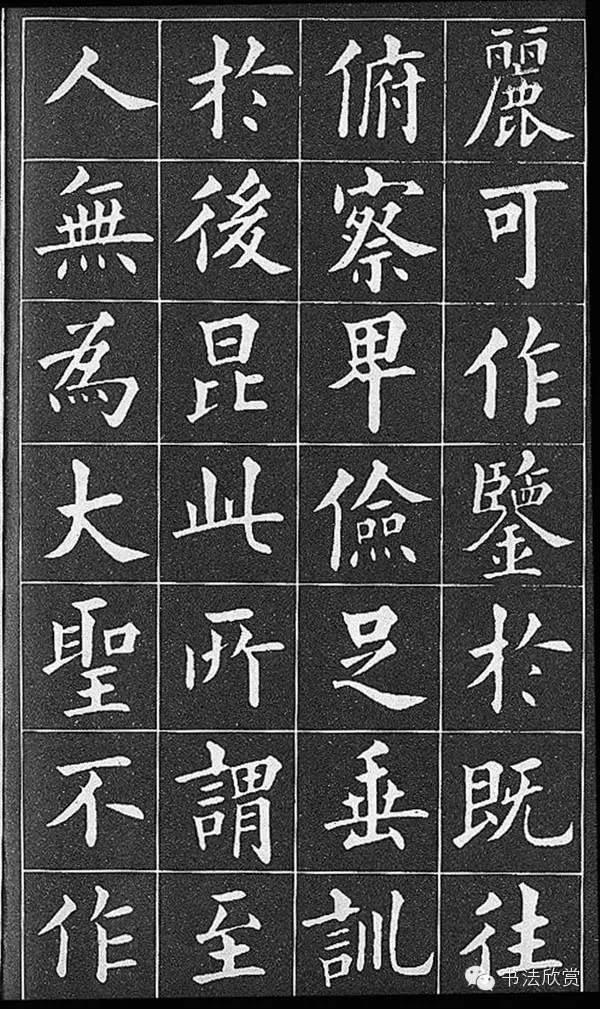 麗可作鑒於既往
俯察卑儉足垂訓
於後昆此所謂至
人無為大聖不作
书法欣赏